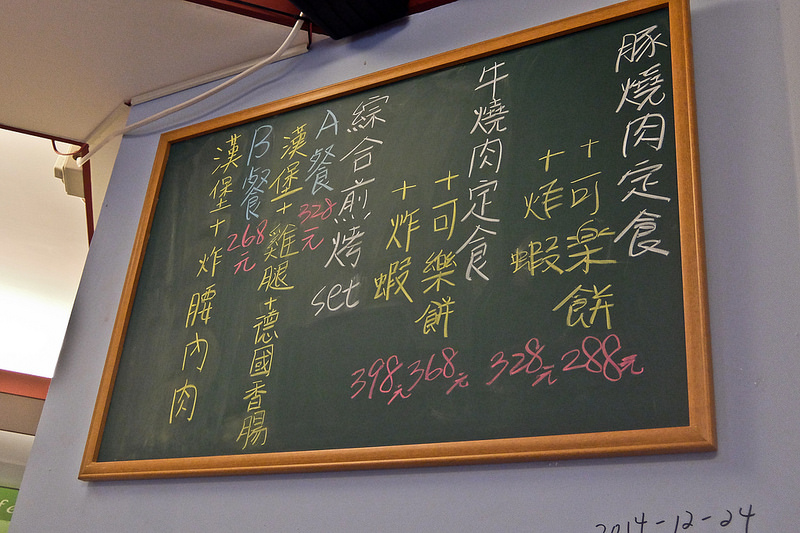 豚燒肉定食
+可樂餅
288元
+炸蝦
328元
牛燒肉定食
+可樂餅
368元
+炸蝦
398元
綜合煎烤set
A餐
328元
漢堡+雞腿+德國香腸
B餐
268元
漢堡+炸腰內肉
2014-12-24